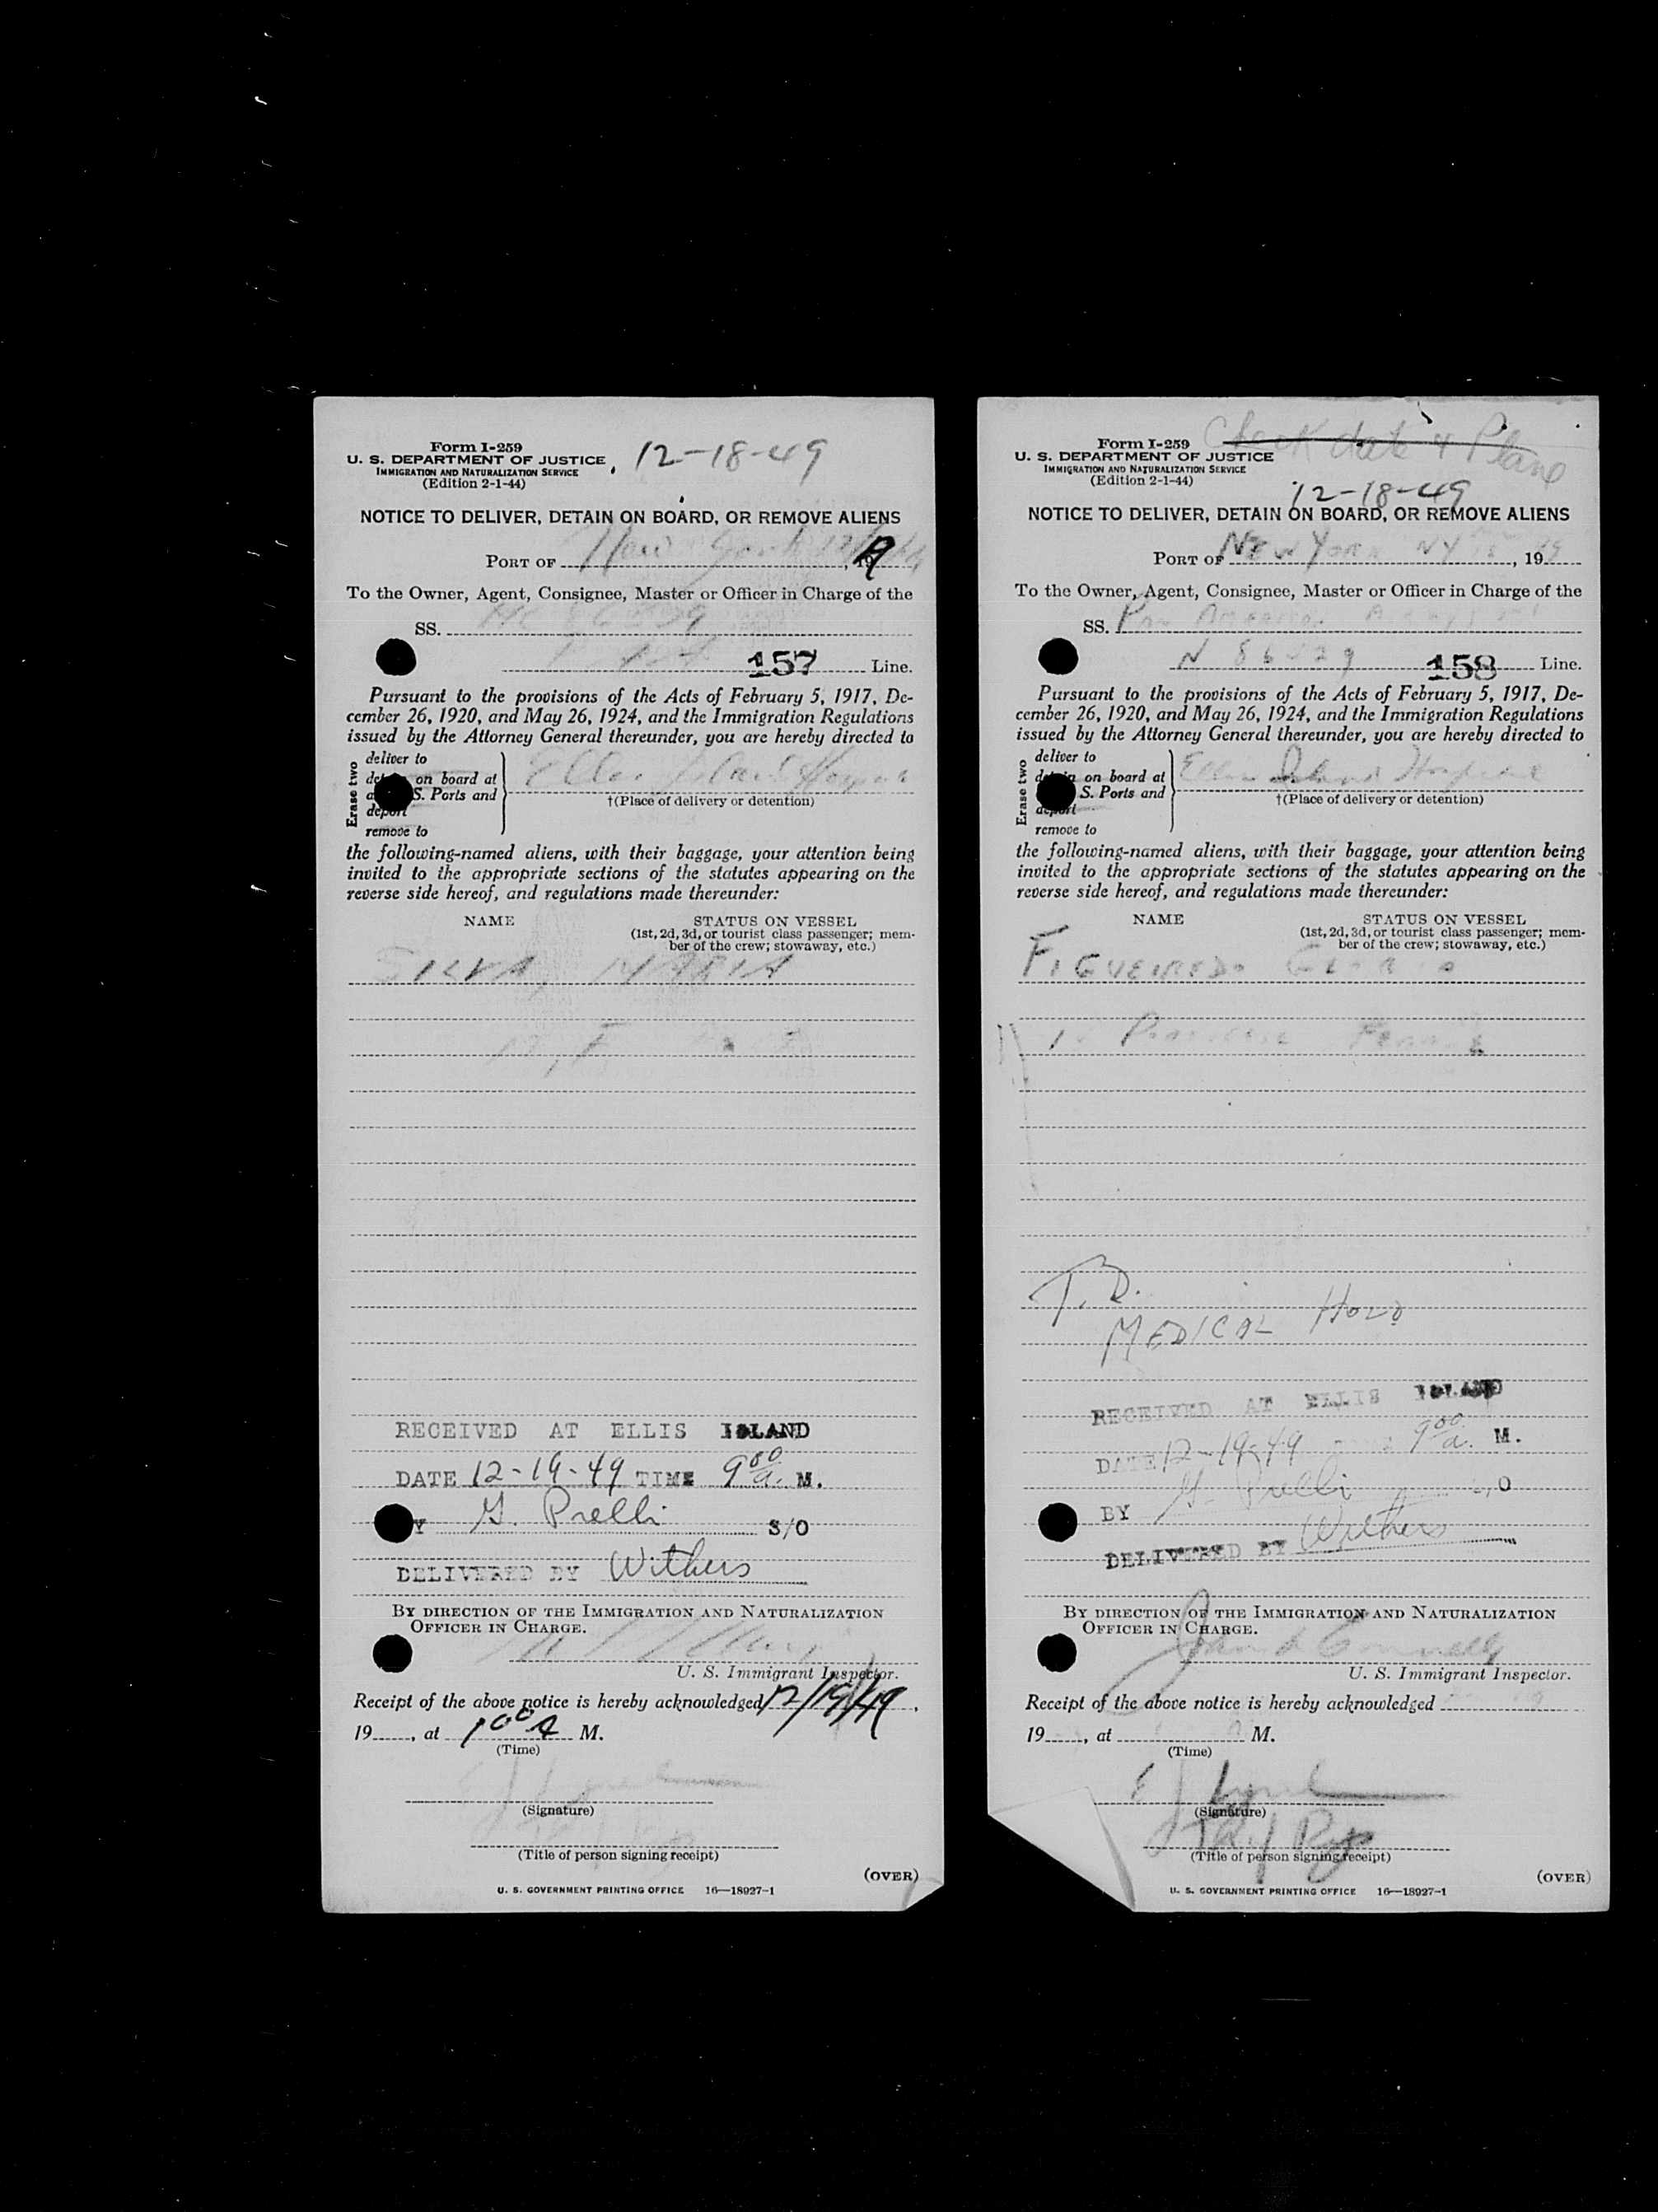 Form I-259
U. S. DEPARTMENT OF JUSTICE
IMMIGRATION AND NATURALIZATION SERVICE
(Edition 2-1-44)
12-18-49
NOTICE TO DELIVER, DETAIN ON BOARD, OR REMOVE ALIENS
PORT OF New York
To the Owner, Agent, Consignee, Master or Officer in Charge of the
SS.
157 Line.
Pursuant to the provisions of the Acts of February 5, 1917, De-
cember 26, 1920, and May 26, 1924, and the Immigration Regulations
issued by the Attorney General thereunder, you are hereby directed to
Erase two
deliver to
on board at
S. Ports and
deport
remove to
Ellis Island
†(Place of delivery or detention)
the following-named aliens, with their baggage, your attention being
invited to the appropriate sections of the statutes appearing on the
reverse side hereof, and regulations made thereunder:
NAME STATUS ON VESSEL
(1st, 2d, 3d, or tourist class passenger; mem-
ber of the crew; stowaway, etc.)
SILVA, MARIA
RECEIVED AT ELLIS ISLAND
DATE 12-19-49 TIME 9 00 a. M.
G. Prelli S/O
DELIVERED BY Withers
BY DIRECTION OF THE IMMIGRATION AND NATURALIZATION
OFFICER IN CHARGE.
U. S. Immigrant Inspector.
Receipt of the above notice is hereby acknowledged 12/19/49,
19, at 1 00 A M.
(Time)
(Signature)
(Title of person signing receipt)
(OVER)
U. S. GOVERNMENT PRINTING OFFICE 16—18927-1
Form I-259
U. S. DEPARTMENT OF JUSTICE
IMMIGRATION AND NATURALIZATION SERVICE
(Edition 2-1-44)
Check date & Plane
12-18-49
NOTICE TO DELIVER, DETAIN ON BOARD, OR REMOVE ALIENS
PORT OF NEW YORK NY, 19
To the Owner, Agent, Consignee, Master or Officer in Charge of the
SS. Pan American
158 Line.
Pursuant to the provisions of the Acts of February 5, 1917, De-
cember 26, 1920, and May 26, 1924, and the Immigration Regulations
issued by the Attorney General thereunder, you are hereby directed to
Erase two
deliver to
on board at
S. Ports and
deport
remove to
Ellis Island Hospital
†(Place of delivery or detention)
the following-named aliens, with their baggage, your attention being
invited to the appropriate sections of the statutes appearing on the
reverse side hereof, and regulations made thereunder:
NAME STATUS ON VESSEL
(1st, 2d, 3d, or tourist class passenger; mem-
ber of the crew; stowaway, etc.)
FIGUEIREDO
T. B.
MEDICAL HOLD
RECEIVED AT ELLIS ISLAND
DATE 12-19-49 9 00 a. M.
BY G. Prelli
DELIVERED BY Withers
BY DIRECTION OF THE IMMIGRATION AND NATURALIZATION
OFFICER IN CHARGE.
U. S. Immigrant Inspector.
Receipt of the above notice is hereby acknowledged
19, at M.
(Time)
(Signature)
(Title of person signing receipt)
(OVER)
U. S. GOVERNMENT PRINTING OFFICE 16—18927-1